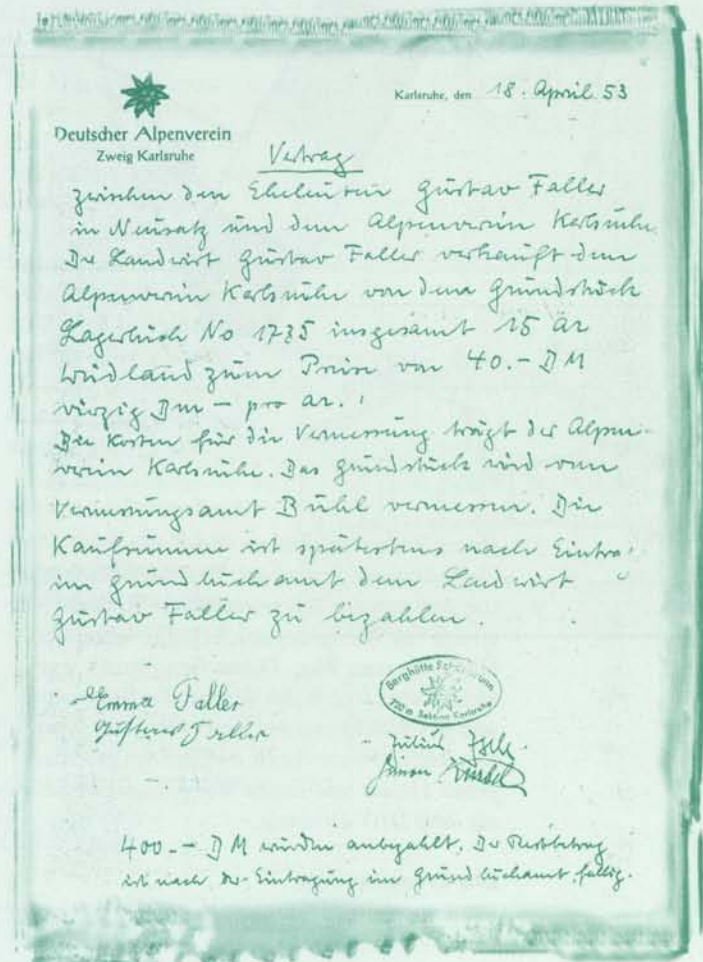 Karlsruhe, den 18. April 53
Deutscher Alpenverein
Zweig Karlsruhe
Vertrag
zwischen den Eheleuten Gustav Faller
in Neusatz und dem Alpenverein Karlsruhe.
Der Landwirt Gustav Faller verkauft dem
Alpenverein Karlsruhe von dem Grundstück
Lagerbuch No 1735 insgesamt 15 ar
Wildland zum Preise von 40.- DM
vierzig DM - pro ar.
Die Kosten für die Vermessung trägt der Alpen-
verein Karlsruhe. Das Grundstück wird vom
Vermessungsamt Bühl vermessen. Die
Kaufsumme ist spätestens nach Eintra
im Grundbuchamt dem Landwirt
Gustav Faller zu bezahlen.
Emma Faller
Gustav Faller
Berghütte
720 m Sektion Karlsruhe
Julius
Simon
400.- DM wurden anbezahlt. Der Restbetrag
ist nach der Eintragung im Grundbuchamt fällig.